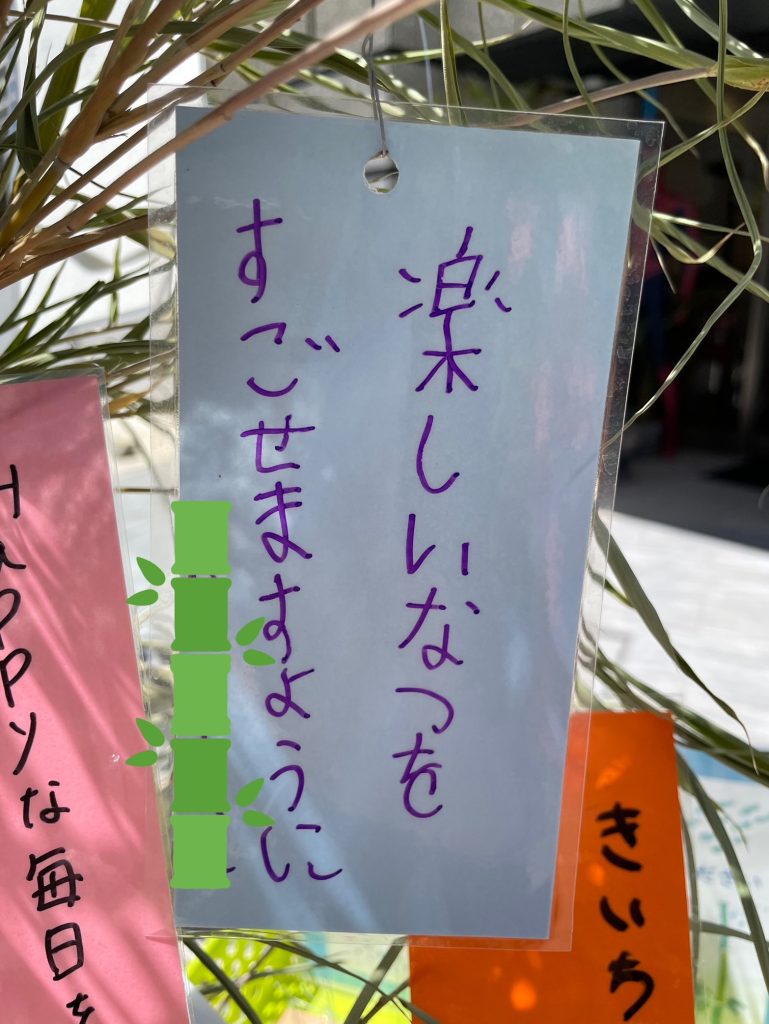 楽しいなつを
すごせますように
Happyな毎日を
きいち